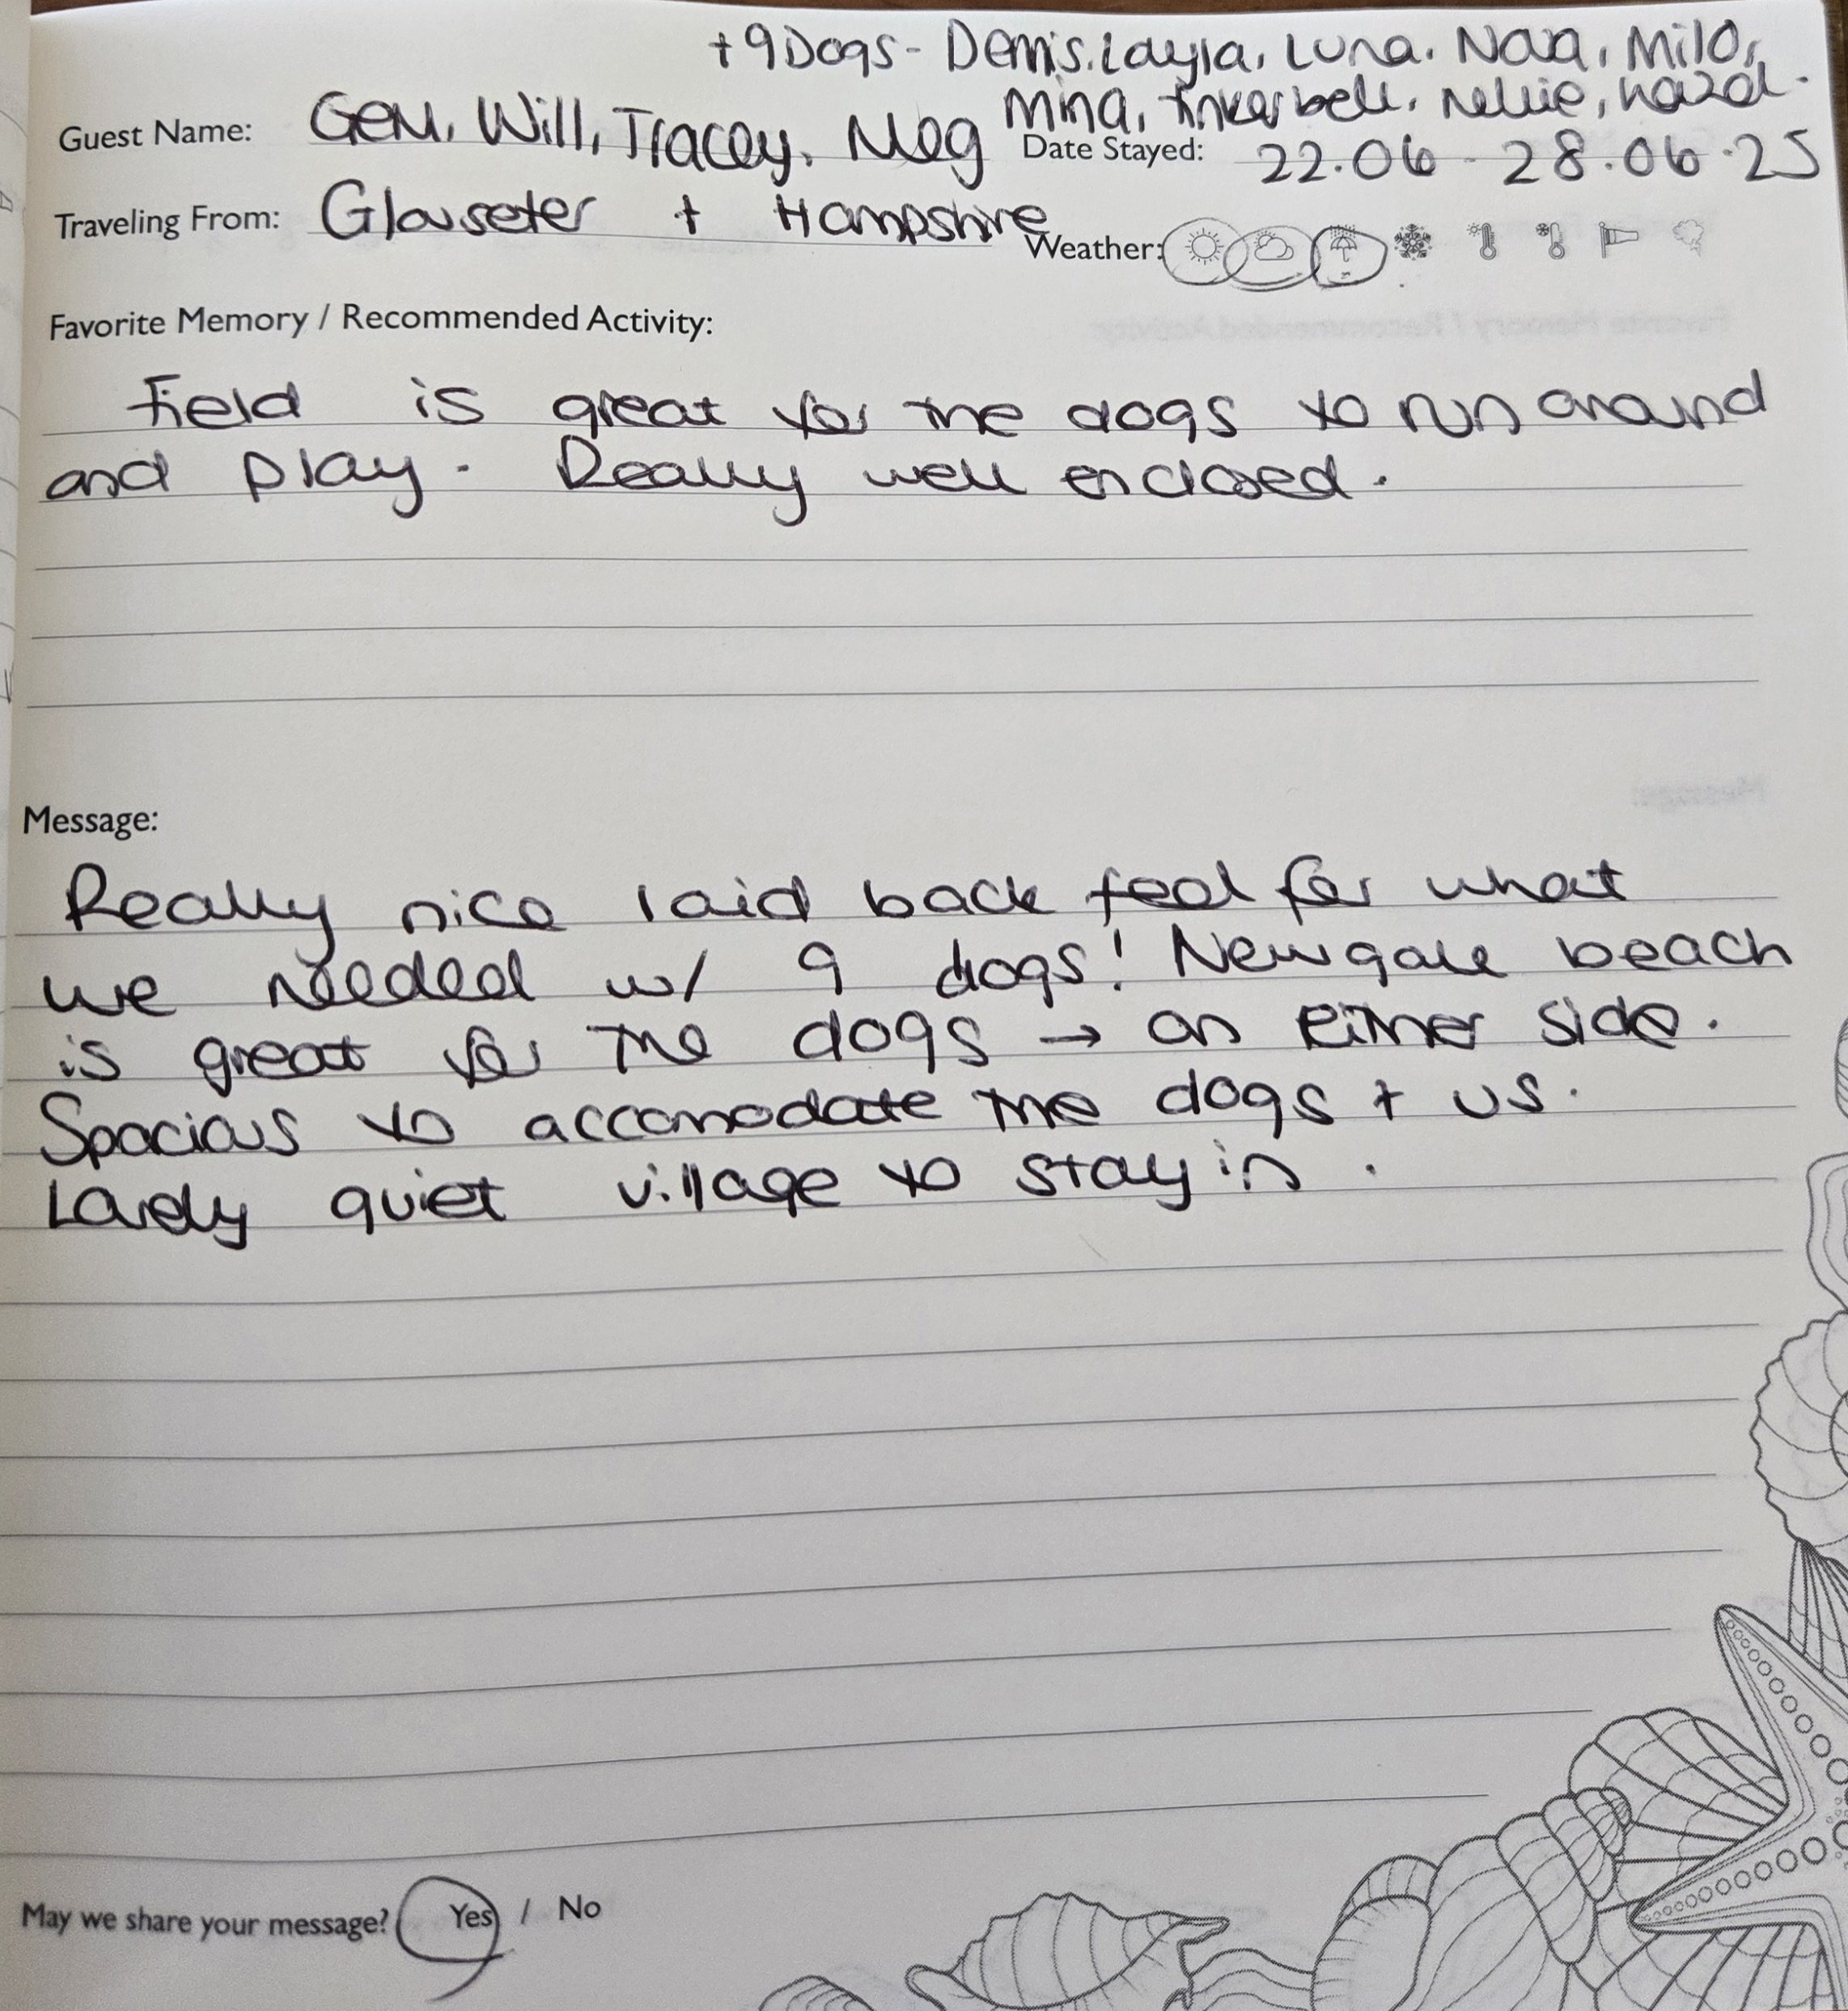 +9 Dogs - Dennis, Layla, Luna, Nala, Milo,
Mina, Tinkerbell, Nellie, Hazel.
Guest Name: Gem, Will, Tracey, Meg
Date Stayed: 22.06 - 28.06.25
Traveling From: Glouseter + Hampshire
Weather:
Favorite Memory / Recommended Activity:
Field is great for the dogs to run around
and play. Really well enclosed.
Message:
Really nice laid back feel for what
we needed w/ 9 dogs! Newgale beach
is great for the dogs → on either side.
Spacious to accomodate the dogs + us.
Lovely quiet village to stay in.
May we share your message? Yes / No